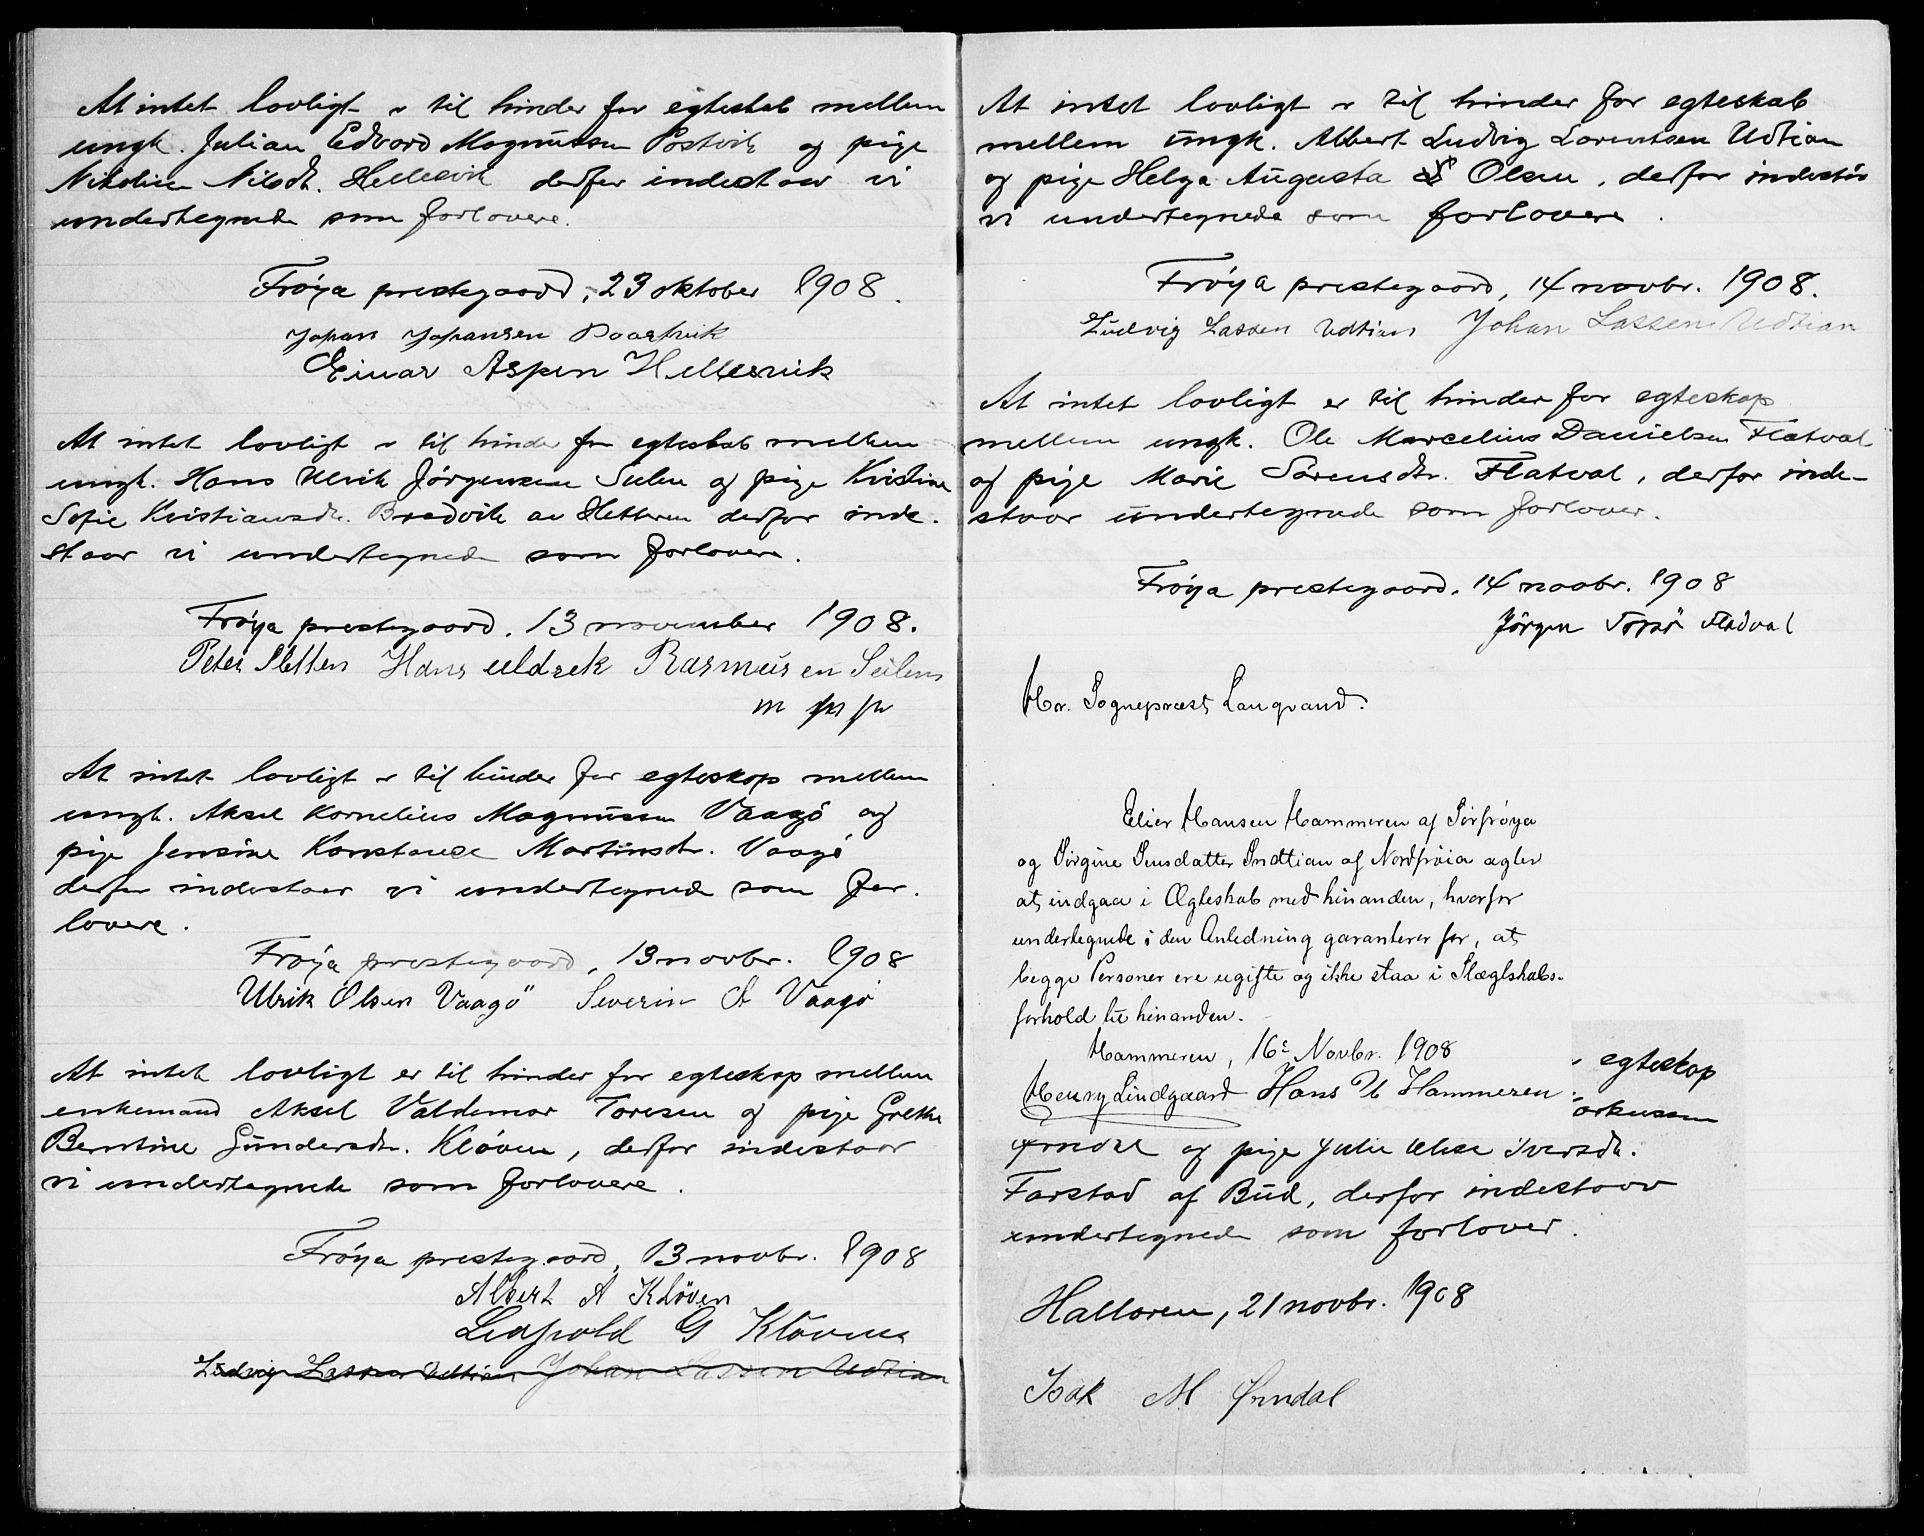 At intet lovligt r til hinder for egteskab mellem
ungk. Julian Edvard Magnussen Postvik og pige
Nikoline Nilsdt. Hellesvik derfor indestaar vi
undertegnede som forlovere.
Frøya prestegaard, 23 oktober 1908.
Johan Johansen Poastvik
Einar Aspen Hellesvik
At intet lovligt r til hinder for egteskab mellem
ungk. Hans Ulrik Jørgensen Sulen og pige Kristine
Sofie Kristiansdtr. Bredvik av Hitteren derfor inde-
staar vi undertegnede som forlovere.
Frøya prestegaard, 13 november 1908.
Peter Sletten Hans uldrek Rasmusen Seilens
m p p
At intet lovligt r til hinder for egteskap mellem
ungk. Aksel Kornelius Magnussen Vaagø og
pige Jensine Konstanse Martinsdtr. Vaagø
derfor indestaar vi undertegnede som for-
lovere.
Frøya prestegaard, 13 novbr. 1908
Ulrik Olsen Vaagö Severin A Vaagø
At intet lovligt er til hinder for egteskap mellem
enkemand Aksel Valdemar Toresen og pige Grethe
Berntine Gundersdtr. Kløven, derfor indestaar
vi undertegnede som forlovere.
Frøya prestegaard, 13 novbr. 1908
Albert A Kløven
Leopold G Kløven
Ludvig Lassen Udtian Johan Lassen Udtian
At intet lovligt r til hinder for egteskab
mellem ungk. Albert Ludvig Lorentsen Udtian
og pige Helga Augusta Olsen, derfor indestår
vi undertegnede som forlovere.
Frøya prestegaard, 14 novbr. 1908.
Ludvig Lassen Udtian Johan Lassen Udtian
At intet lovligt er til hinder for egteskap
mellem ungk. Ole Marcelius Danielsen Flatval
og pige Marie Sørensdtr. Flatval, derfor inde-
staar undertegnede som forlover.
Frøya prestegaard, 14 novbr. 1908
Jørgen Torsø Fladval
Hr. Sogneprest Langvand.
Elier Hansen Hammeren af Sørfrøya
og Jørgine Jensdatter Indtian af Nordfrøia agter
at indgaa i Ægteskab med hinanden, hvorfor
undertegnede i den Anledning garanterer for, at
begge Personer ere ugifte og ikke staa i Slægtskabs-
forhold til hinanden.
Hammeren, 16e Novbr. 1908
Henry Lindgaard Hans U Hammeren
egteskop
orkussen
Ørndal og pige Julie Elise Iversdtr.
Farstad af Bud, derfor indestaar
undertegnede som forlover.
Hallaren, 21 novbr. 1908
Isak M Ørndal